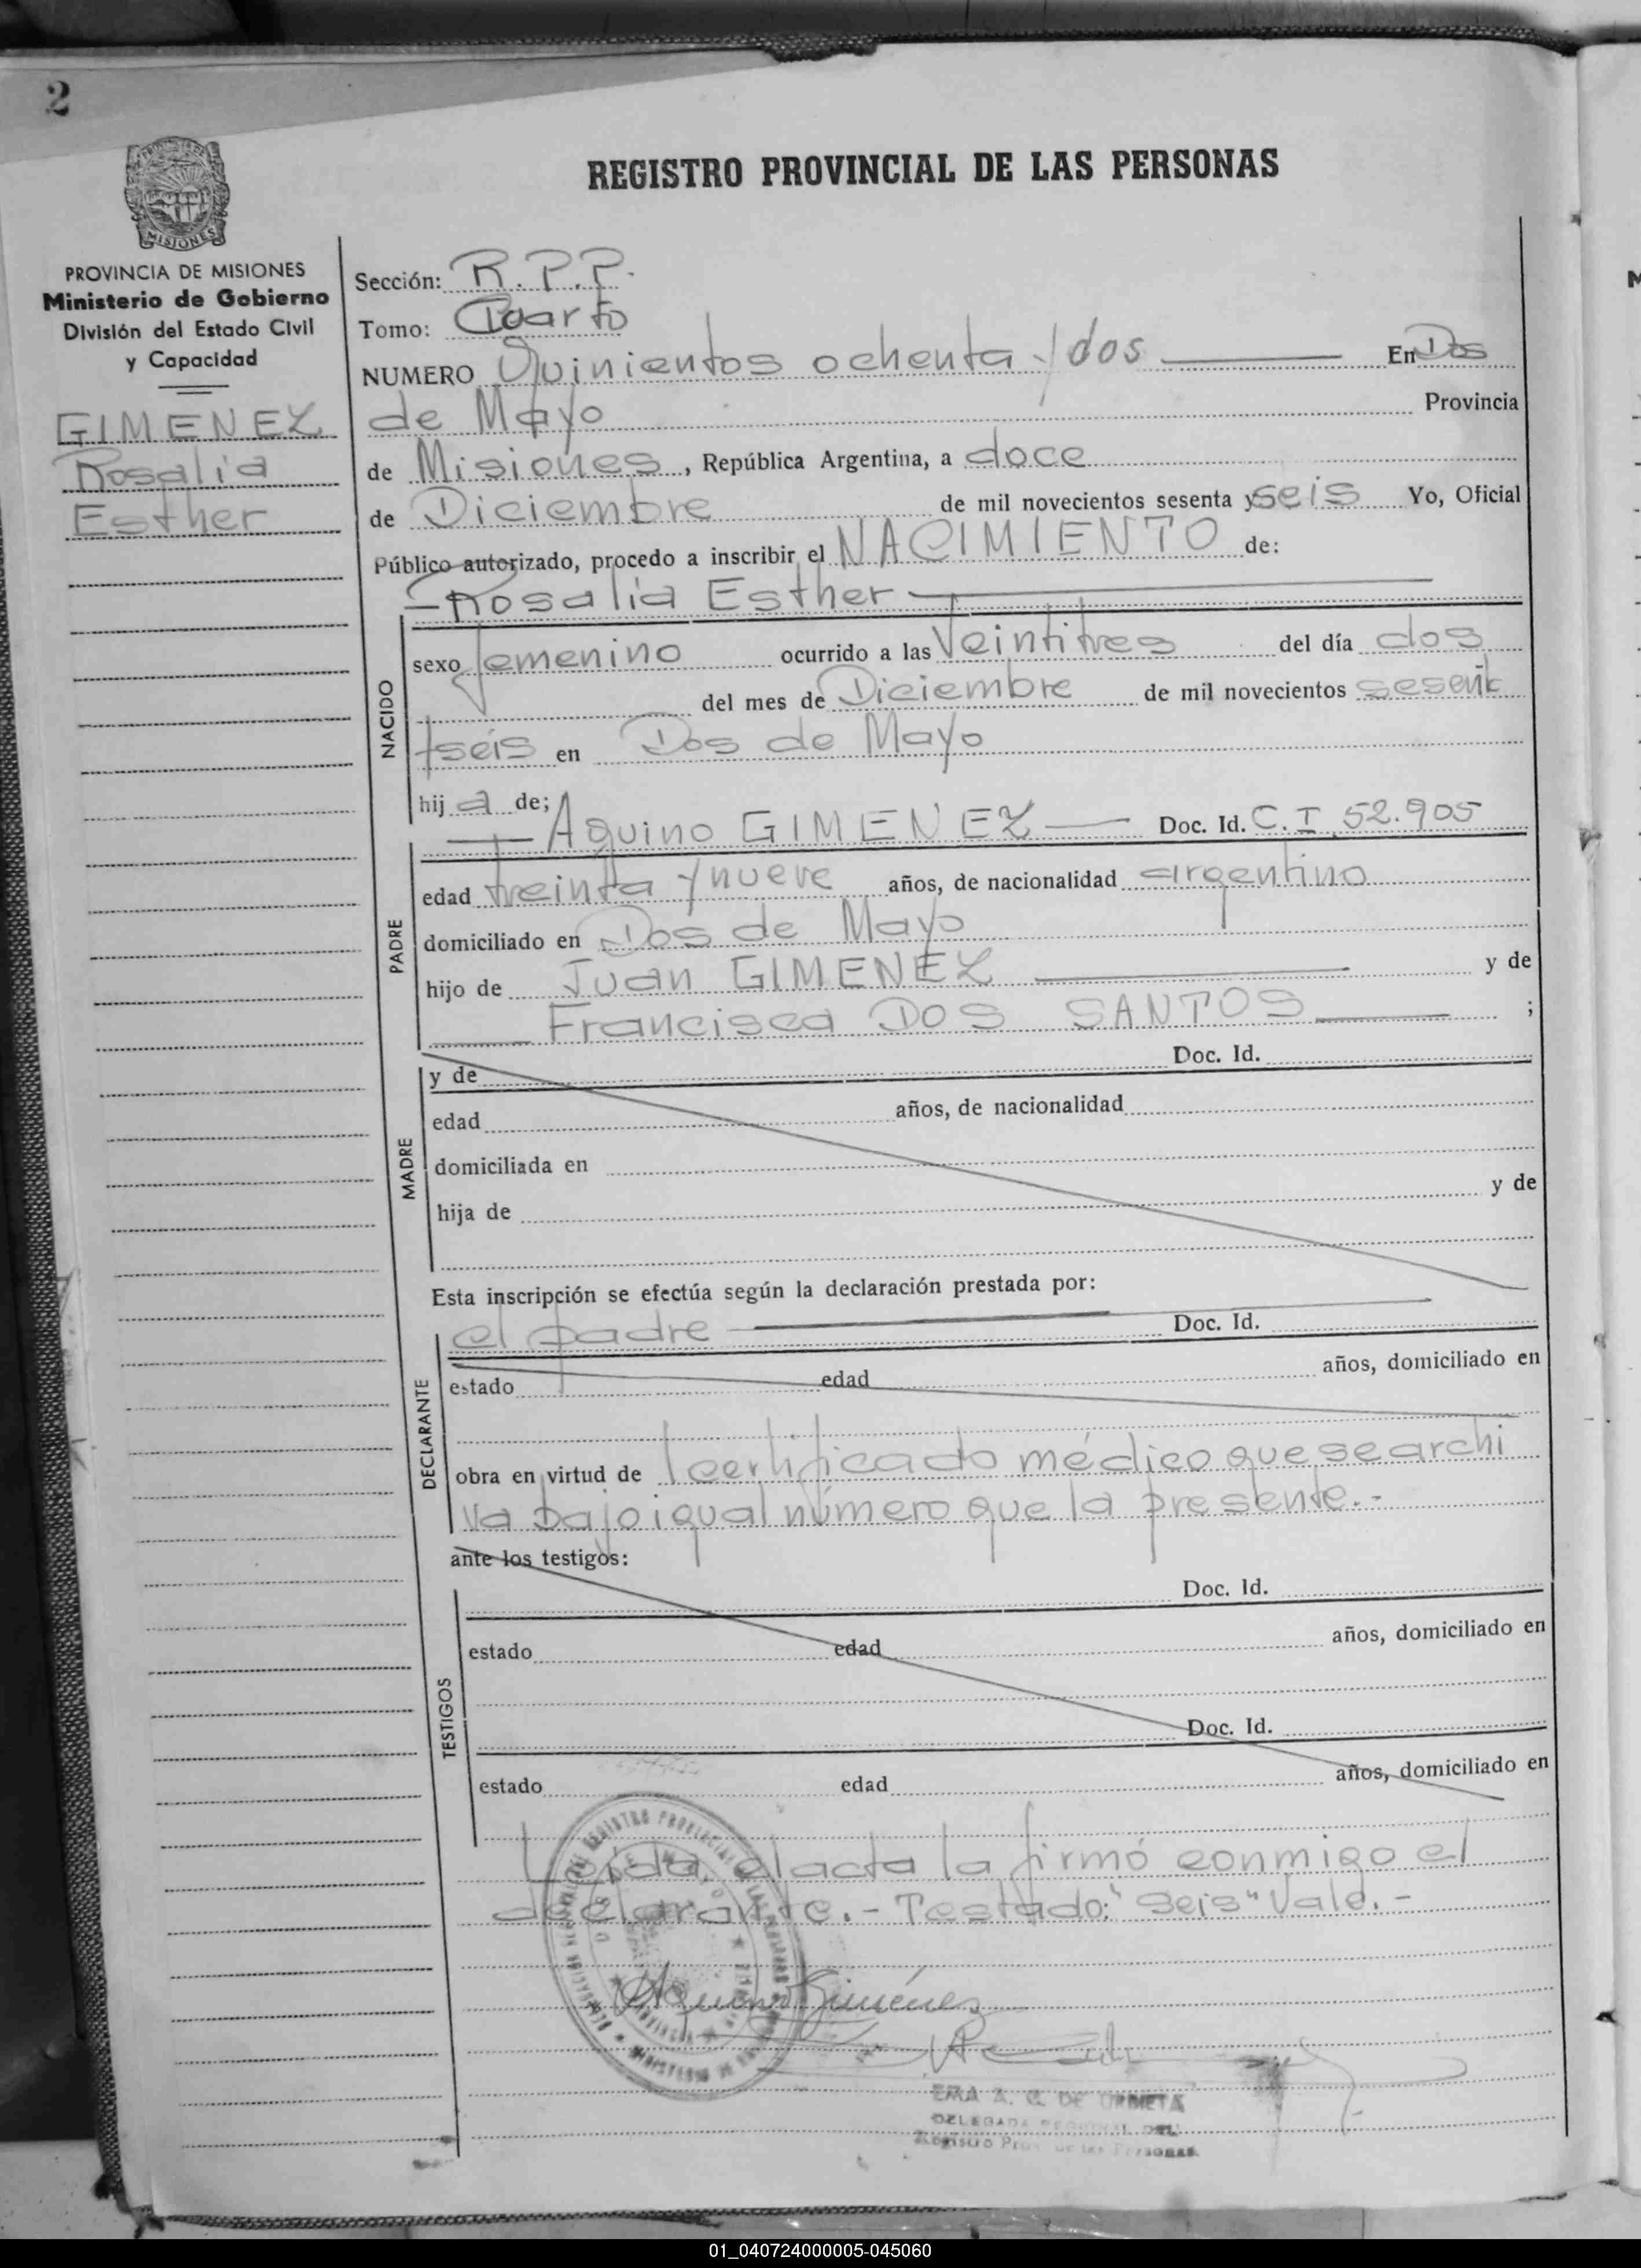 2
REGISTRO PROVINCIAL DE LAS PERSONAS
MISIONES
PROVINCIA DE MISIONES
Ministerio de Gobierno
División del Estado Civil
y Capacidad
GIMENEZ
Rosalia
Esther
Sección: R.P.P.
Tomo: Cuarto
NUMERO Quinientos ochenta y dos En Dos
de Mayo Provincia
de Misiones, República Argentina, a doce
de Diciembre de mil novecientos sesenta y seis Yo, Oficial
Público autorizado, procedo a inscribir el NACIMIENTO de:
Rosalia Esther
NACIDO
sexo femenino ocurrido a las Veintitres del día dos
del mes de Diciembre de mil novecientos sesent
y seis en Dos de Mayo
hij a de;
Aquino GIMENEZ Doc. Id. C.I. 52.905
PADRE
edad treinta y nueve años, de nacionalidad argentino
domiciliado en Dos de Mayo
hijo de Juan GIMENEZ y de
Francisca DOS SANTOS ;
MADRE
y de Doc. Id.
edad años, de nacionalidad
domiciliada en
hija de y de
Esta inscripción se efectúa según la declaración prestada por:
el padre Doc. Id.
DECLARANTE
estado edad años, domiciliado en
obra en virtud de l certificado médico que se archi
va bajo igual número que la presente.-
ante los testigos:
TESTIGOS
Doc. Id.
estado edad años, domiciliado en
Doc. Id.
estado edad años, domiciliado en
Leída el acta la firmó conmigo el
declarante.- Testado: "seis" Vale.-
Aquino Giménez
EMA A. G. DE URRIETA
DELEGADA REGIONAL DEL
Registro Prov. de las Personas
01_040724000005-045060